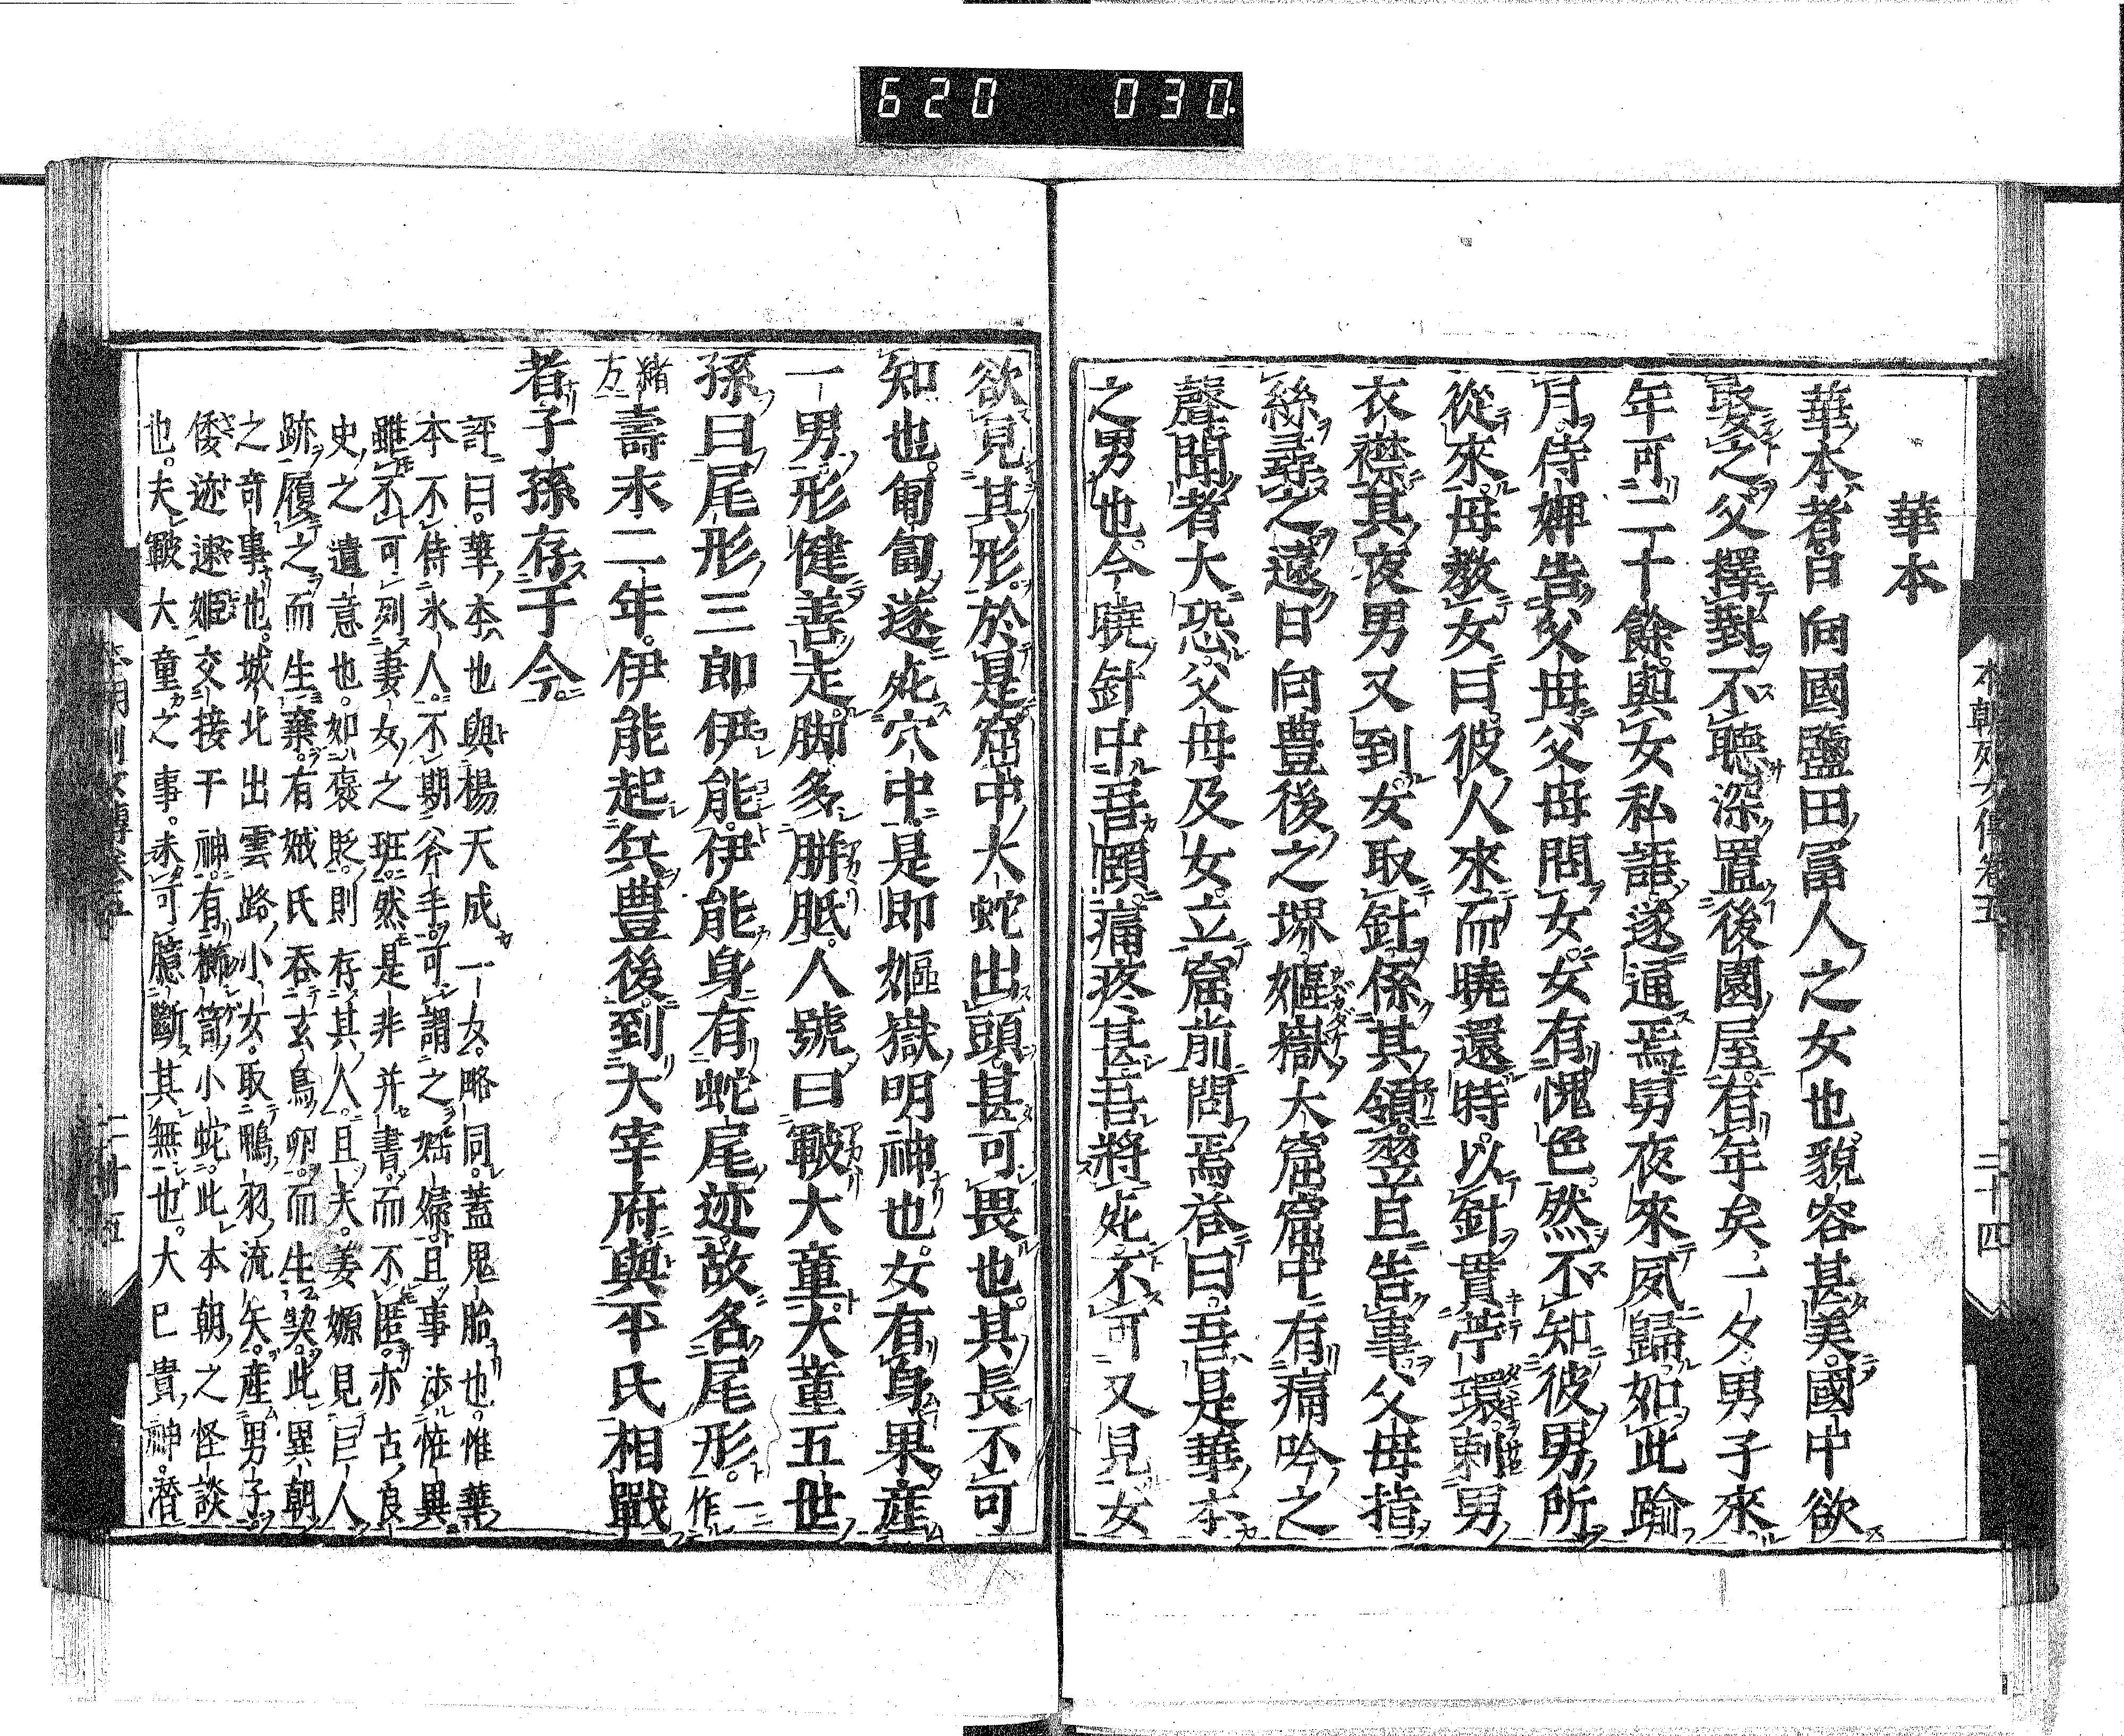 620 030
本朝列女傳卷五 二十四
華本
華本者日向國鹽田冨人之女也貌容甚美國中欲
娶之父擇對不聴深置後園屋有年矣一夕男子來
年可二十餘與女私語遂通焉男夜來夙歸如此踰
月侍婢告父母父母問女女有愧色然不知彼男所
從來母教女曰彼人來而曉還時以針貫苧環刺男
衣襟其夜男又到女取針係其領翌旦告事父母指
絲尋之遠日向豊後之堺嫗嶽大窟窟中有痛吟之
聲聞者大恐父母及女立窟前問焉荅曰吾是華本
之男也今曉針中吾頤痛疼甚吾將死不可又見女
欲見其形於是窟中大蛇出頭甚可畏也其長不可
知也匍匐遂死穴中是即嫗嶽明神也女有身果産
一男形健善走脚多胼胝人號曰皸大童大童五世
孫曰尾形三郎伊能伊能身有蛇尾迹故名尾形一作三
緒方壽永二年伊能起兵豊後到大宰府與平氏相戰
者子孫存于今
評曰華本也與楊天成一女略同蓋鬼胎也惟華
本不侍氷人不期斧手可謂之婬婦且事渉恠異
雖不可列妻女之班然是非并書而不匿亦古良
史之遺意也如褒貶則存其人且夫姜嫄見巨人
跡履之而生棄有娀氏吞玄鳥卵而生契此異朝
之奇事也城北出雲路小女取鴨羽流矢産男子
倭迹速姫交接于神有櫛笥小蛇此本朝之怪談
也夫皸大童之事未可臆斷其無也大巳貴神潜